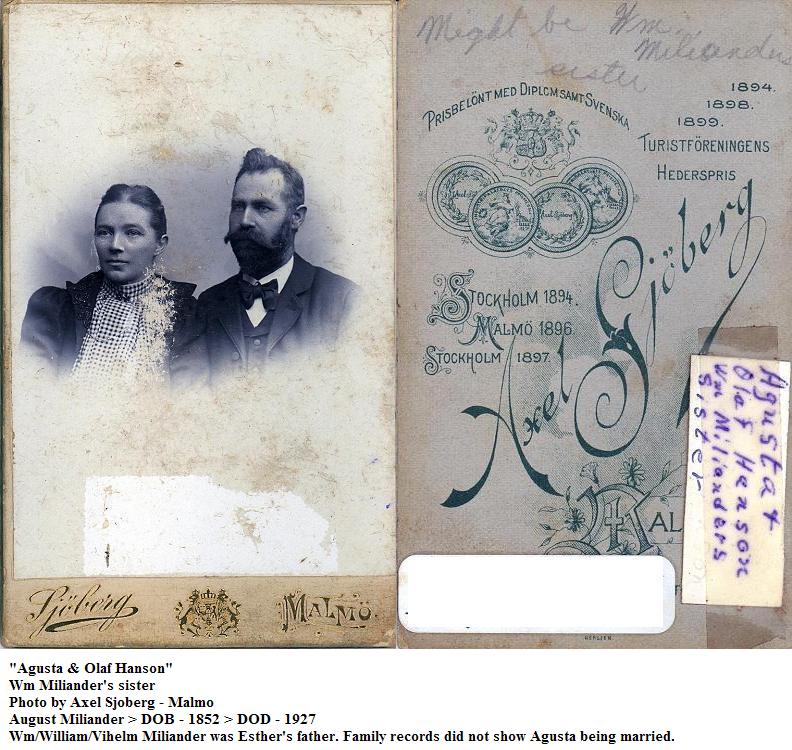 Sjöberg
MALMÖ.
Might be Wm.
Milianders
sister
PRISBELÖNT MED DIPLOM SAMT SVENSKA
1894.
1898.
1899.
TURISTFÖRENINGENS
HEDERSPRIS
STOCKHOLM 1894.
MALMÖ 1896.
STOCKHOLM 1897.
Axel Sjöberg
KAL
Agusta +
Olaf Henson
Wm Milianders
Sister
"Agusta & Olaf Hanson"
Wm Miliander's sister
Photo by Axel Sjoberg - Malmo
August Miliander > DOB - 1852 > DOD - 1927
Wm/William/Vihelm Miliander was Esther's father. Family records did not show Agusta being married.